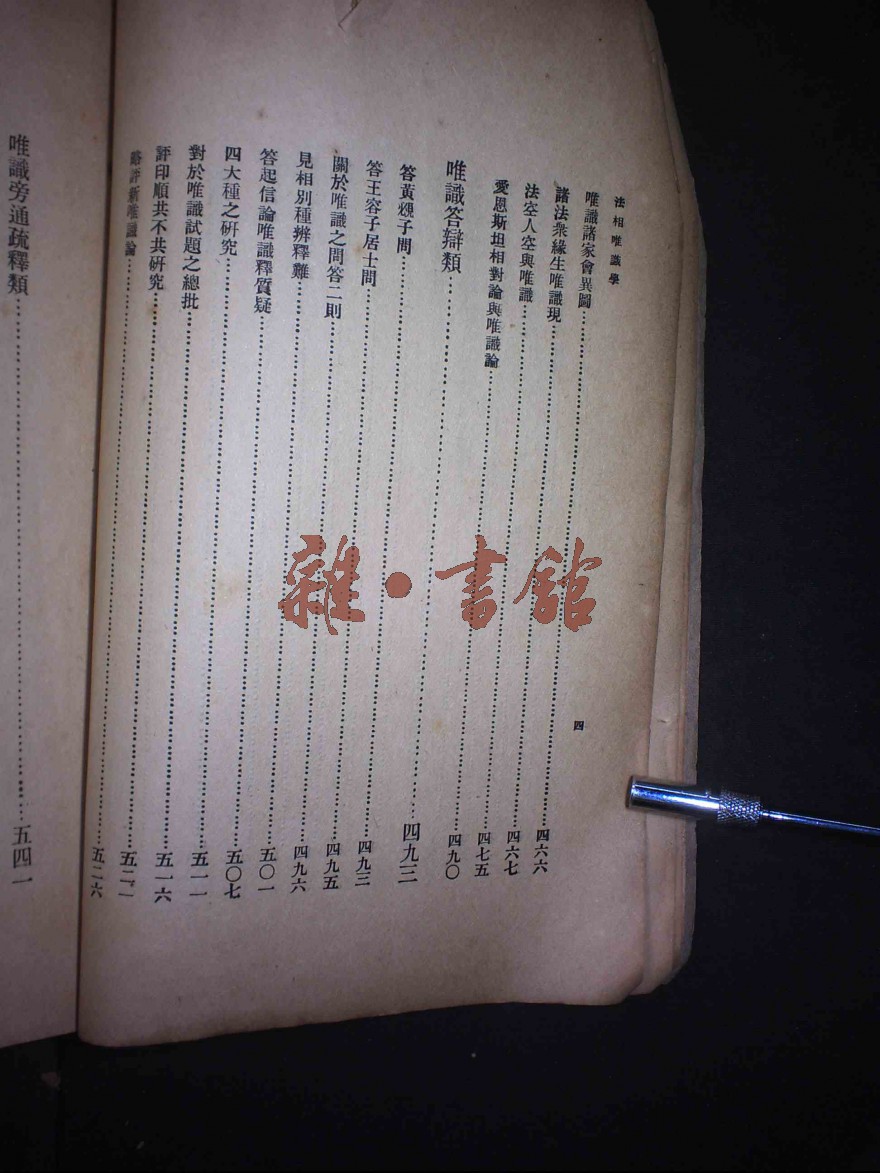 法相唯識學
唯識諸家會異圖……四六六
諸法衆緣生唯識現……四六七
法空人空與唯識……四七五
愛恩斯坦相對論與唯識論……四九〇
唯識答辯類……四九三
答黃子問……四九三
答王容子居士問……四九五
關於唯識之問答二則……四九六
見相別種辨釋難……五〇一
答起信論唯識釋質疑……五〇七
四大種之研究……五一一
對於唯識試題之總批……五一六
評印順共不共研究……五二一
略評新唯識論……五二六
四
唯識旁通疏釋類……五四一
雜·書館